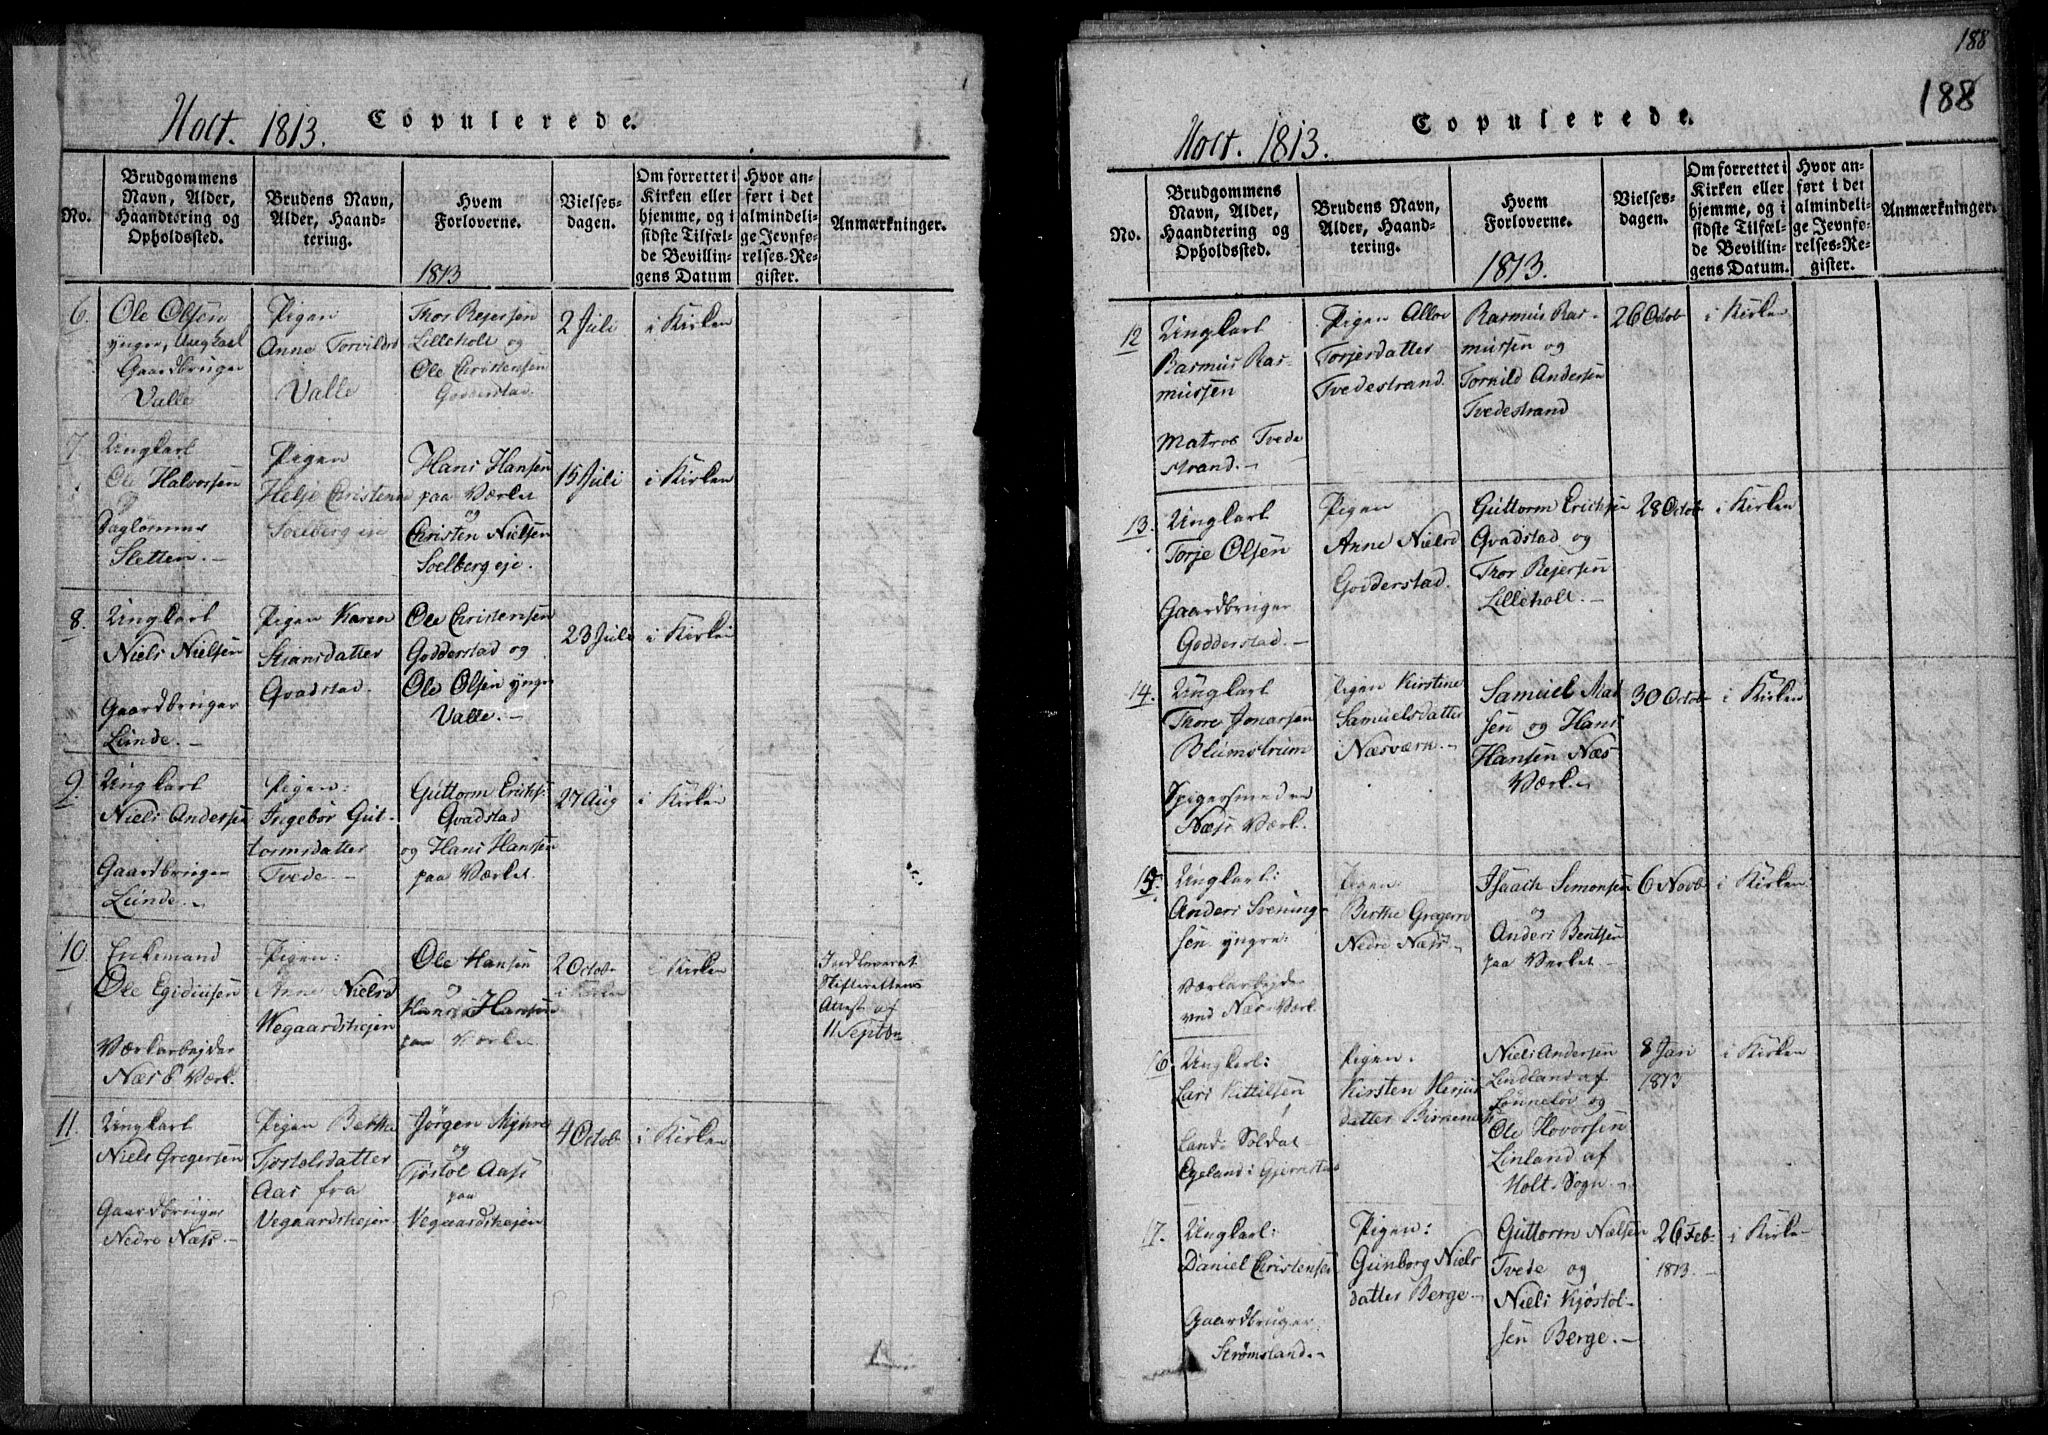 Holt. 1813. Copulerede.
No.
Brudgommens
Navn, Alder,
Haandtering og
Opholdssted.
Brudens Navn,
Alder, Haand-
tering.
Hvem
Forloverne.
1813
Vielses-
dagen.
Om forrettet i
Kirken eller
hjemme, og i
sidste Tilfæl-
de Bevillin-
gens Datum
Hvor an-
ført i det
almindeli-
ge Jevnfø-
relses-Re-
gister.
Anmærkninger.
6.
Ole Olsen
ynger, Ungkarl
Gaardbruger
Valle
Pigen
Anne Torvildsd
Valle
Thor Rejersen
Lilleholt og
Ole Christensen
Godderstad.
2 Juli
i Kirken
7
Ungkarl
Ole Halvorsen
Daglønner
Sletten.-
Pigen
Helje Christensd
Soelberg eje
Hans Hansen
paa Værket
og
Christen Nielsen
Soelberg eje.
15 Juli
i Kirken
8.
Ungkarl
Niels Nielsen
Gaardbruger
Lunde.-
Pigen Karen
Stiansdatter
Qvadstad.
Ole Christensen
Godderstad og
Ole Olsen ynger
Valle.-
23 Juli
i Kirken
9.
Ungkarl
Niels Andersen
Gaardbruger
Lunde.-
Pigen:
Ingebor Gut-
tormsdatter
Tvede.-
Guttorm Erichs:
Qvadstad
og Hans Hansen
paa Værket.
27 Aug
i Kirken
10.
Enkemand
Ole Egidiusen
Værkarbejder
Næs Værk.
Pigen:
Anne Nielsd
Wegaardshejen
Ole Hansen
og
Hans Hansen
paa Værket
2 Octob.
i Kirken
i Kirken
Indleveret
Skifterettens
Attest af
11 Septbr
11.
Ungkarl
Niels Gregersen
Gaardbruger
Nedre Næss.-
Pigen Berthe
Tjøstolsdatter
Aas fra
Vegaardshejen
Jørgen Myhre
og
Tjøstol Aass
paa
Vegaardshejen
4 Octob
i Kirken
188
188
Holt. 1813. Copulerede.
No.
Brudgommens
Navn, Alder,
Haandtering og
Opholdssted.
Brudens Navn,
Alder, Haand-
tering.
Hvem
Forloverne.
1813.
Vielses-
dagen.
Om forrettet i
Kirken eller
hjemme, og i
sidste Tilfæl-
de Bevillin-
gens Datum.
Hvor an-
ført i det
almindeli-
ge Jevnfø-
relses-Re-
gister.
Anmærkninger.
12
Ungkarl
Rasmus Ras-
mussen
Matros Tvede
strand.-
Pigen Allov
Torjersdatter
Tvedestrand.
Rasmus Ras-
mussen og
Tornild Andersen
Tvedestrand
26 Octob
i Kirken
13.
Ungkarl
Torje Olsen
Gaardbruger
Godderstad.-
Pigen
Anne Nielsd
Godderstad.
Guttorm Erichsen
Qvadstad og
Thor Rejersen
Lilleholt.-
28 Octob
i Kirken
14.
Ungkarl
Thore Jonassen
Blumstrum
Spigersmed ved
Næss Værk.
Pigen Kirstine
Samuelsdatter
i Næsværk.-
Samuel Mad
sen og Hans
Hansen Næs
Værk.-
30 Octob
i Kirken
15.
Ungkarl:
Anders Svening-
sen yngre:
Værkarbejder
ved Næs Værk
Pigen
Berthe Gregersd
Nedre Næss-
Isaach Simonsen
og
Anders Bentsen
paa Verket-
6 Novb
i Kirken
16
Ungkarl:
Lars Kittilsen
Land: Soldat
Egeland i Gjernstad
Pigen.
Kirsten Herjus
datter Birkenes
Niels Andersen
Lindland af
Sønneløv og
Ole Hovorsen
Linland af
Holt Sogn.-
8 Jari
1813
i Kirken
17.
Ungkarl:
Daniel Christensen
Gaardbruger
Strømsland.-
Pigen:
Gunborg Niels
datter Berge-
Guttorm Nielsen
Tvede og
Niels Kjøstol-
sen Berge.-
26 Feb.
1813.
i Kirke